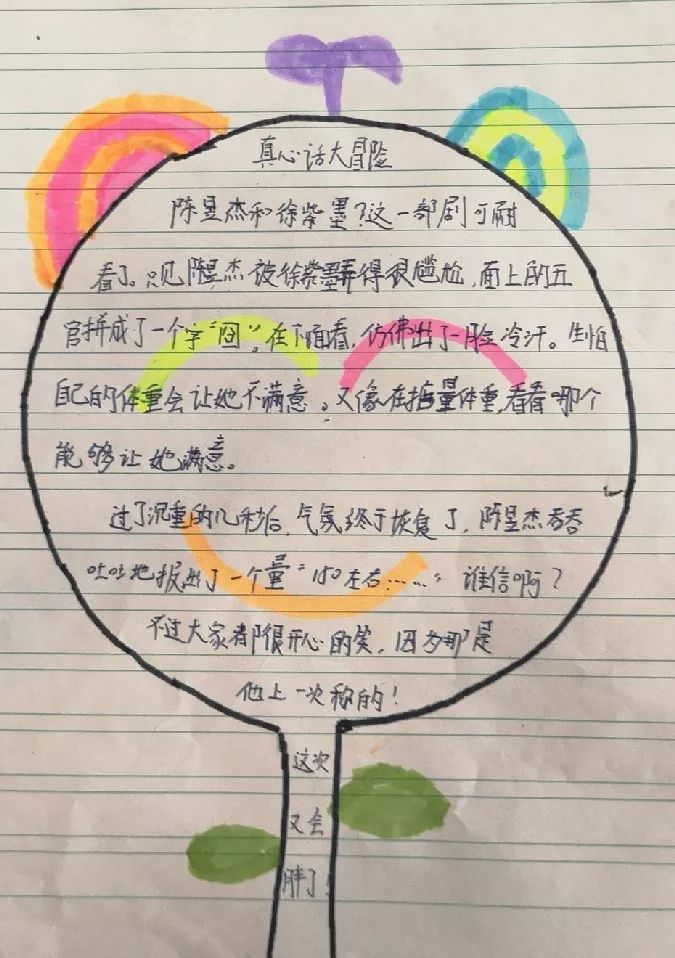 真心话大冒险
陈昱杰和徐紫墨？这一部剧可耐
看了。只见陈昱杰被徐紫墨弄得很尴尬，面上的五
官拼成了一个字“囧”。在下面看，仿佛出了一脸冷汗。生怕
自己的体重会让她不满意。又像在掂量体重，看看哪个
能够让她满意。
过了沉重的几秒后，气氛终于恢复了，陈昱杰吞吞
吐吐地报出了一个量“150左右……”谁信啊？
不过大家都很开心的笑，因为那是
他上一次称的！
这次
又会
胖了！